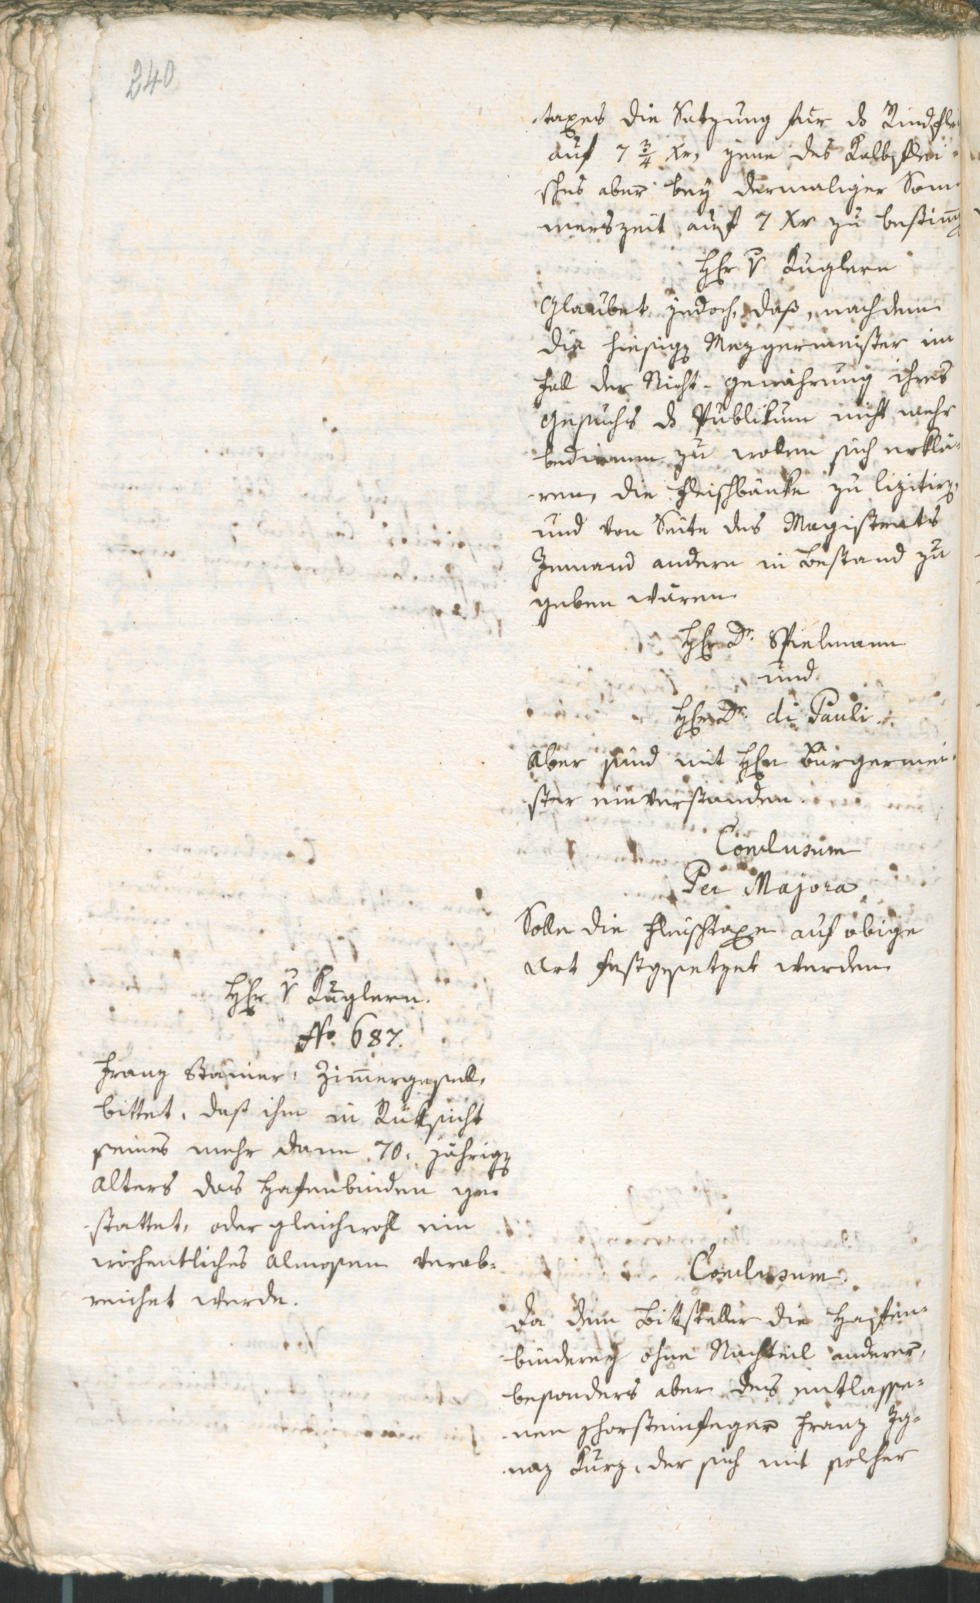 240
taxes die Satzung für ds Rindflei
auf 7 3/4 Xr, jene des Kalbflei-
sches aber bey dermaliger Som-
merszeit auf 7 Xr zu bestimen
HEr v Kuglern
Glaubet jedoch, daß, nachdem
die hiesigen Mezgermeister im
Fall der Nicht-gewährung ihres
Gesuchs ds Publikum nicht mehr
bedienen zu wolen sich erklä-
ren, die Fleischbänke zu lizitiren,
und von Seite des Magistrats
Jemand andern in Bestand zu
geben wären
HEr Dr. Spielmann
und
HEr Dr. di Pauli
Aber sind mit HEr Bürgermei-
ster einverstanden.
Conclusum
Per Majora
Solle die Fleischtaxe auf obige
Art festgesetzet werden
HEr v Kuglern.
No. 687.
Franz Stainer, Zimergesell,
bittet, daß ihm in Rüksicht
seines mehr dann 70. jährigen
Alters das Hafenbinden ge-
stattet, oder gleichwohl ein
wöchentliches Almosen verab-
reichet werde.
Conclusum
Da dem Bittsteller die Hafen-
binderey ohne Nachteil anderer,
besonders aber des entlasse-
nen Chorsteinfeger Franz Ig-
naz Kurz, der sich mit solcher